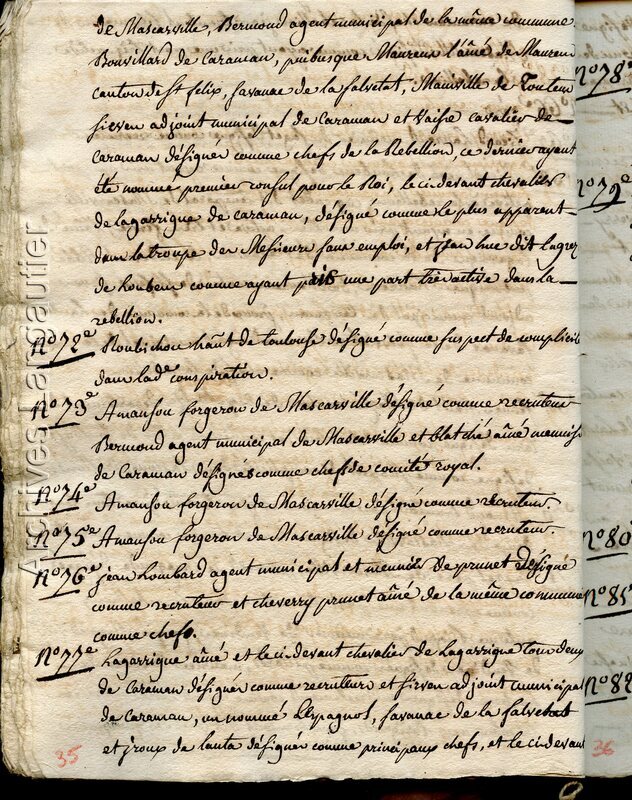 de Mascarville, Bermond agent municipal de la même commune
Bonvillard de Caraman, puibusque Maureux l'aîné de Maurens
Canton de St felix, favanac de la salvetat, Mainville de Toutens
Sirven adjoint municipal de Caraman et Vaisse cavalier de
Caraman désignés comme chefs de la Rebellion, ce dernier ayant
été nommé premier consul pour le Roi, le ci devant chevalier
de lagarrigue de Caraman, désigné comme le plus apparent
dans la troupe des Messieurs sans emploi, et jean huc dit
de comme ayant pris une part très active dans la
rebellion.
No 72e Roubichon hant de toulouse désigné comme suspect de complicité
dans lade conspiration.
No 73e Amansou forgeron de Mascarville désigné comme recruteur
Bermond agent municipal de Mascarville et blatché aîné menuisier
de Caraman désignés comme chefs de comité royal.
No 74e Amansou forgeron de Mascarville désigné comme recruteur.
No 75e Amansou forgeron de Mascarville désigné comme recruteur.
No 76e jean Lombard agent municipal et meunier de prunet désigné
comme recruteur et cheverry prunet aîné de la même commune
comme chefs.
No 77e Lagarrigue aîné et le ci devant chevalier de Lagarrigue tous deux
de Caraman désignés comme recruteurs et Sirven adjoint municipal
de Caraman, un nommé Lespagnol, favanac de la salvetat
et jroux de lanta désignés comme principaux chefs, et le ci devant
35
No 78e
No 79e
No 80
No 85
No 88
36
Archives Lanegautier